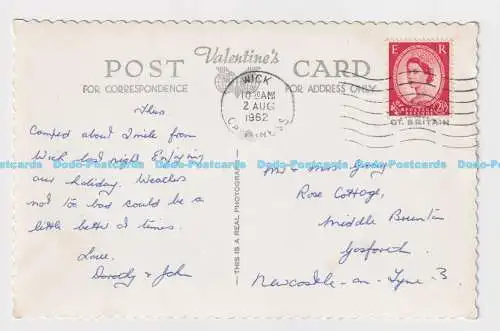 POST Valentine's CARD
FOR CORRESPONDENCE FOR ADDRESS ONLY
WICK
10 AM
2 AUG
1962
CAITHNESS
E R
2½
GT. BRITAIN
Thurs.
Camped about 1 mile from
Wick last night. Enjoying
our holiday. Weather
not too bad could be a
little better at times.
Love.
Dorothy & John
THIS IS A REAL PHOTOGRAPH
Mr & Mrs Gray
Rose Cottage,
Middle Brunton
Gosforth
Newcastle-on-Tyne 3.
Dodo-Postcards Dodo-Postcards Dodo-Postcards Dodo-Postcards